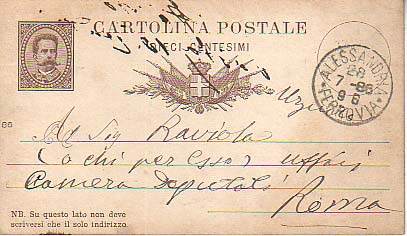 CARTOLINA POSTALE
DIECI CENTESIMI
ALESSANDRIA
28
7-86
9 S
FERROVIA
86
Al Sig Raviola
(o chi per esso) Uffizi
Camera Deputati
Roma
NB. Su questo lato non deve
scriversi che il solo indirizzo.